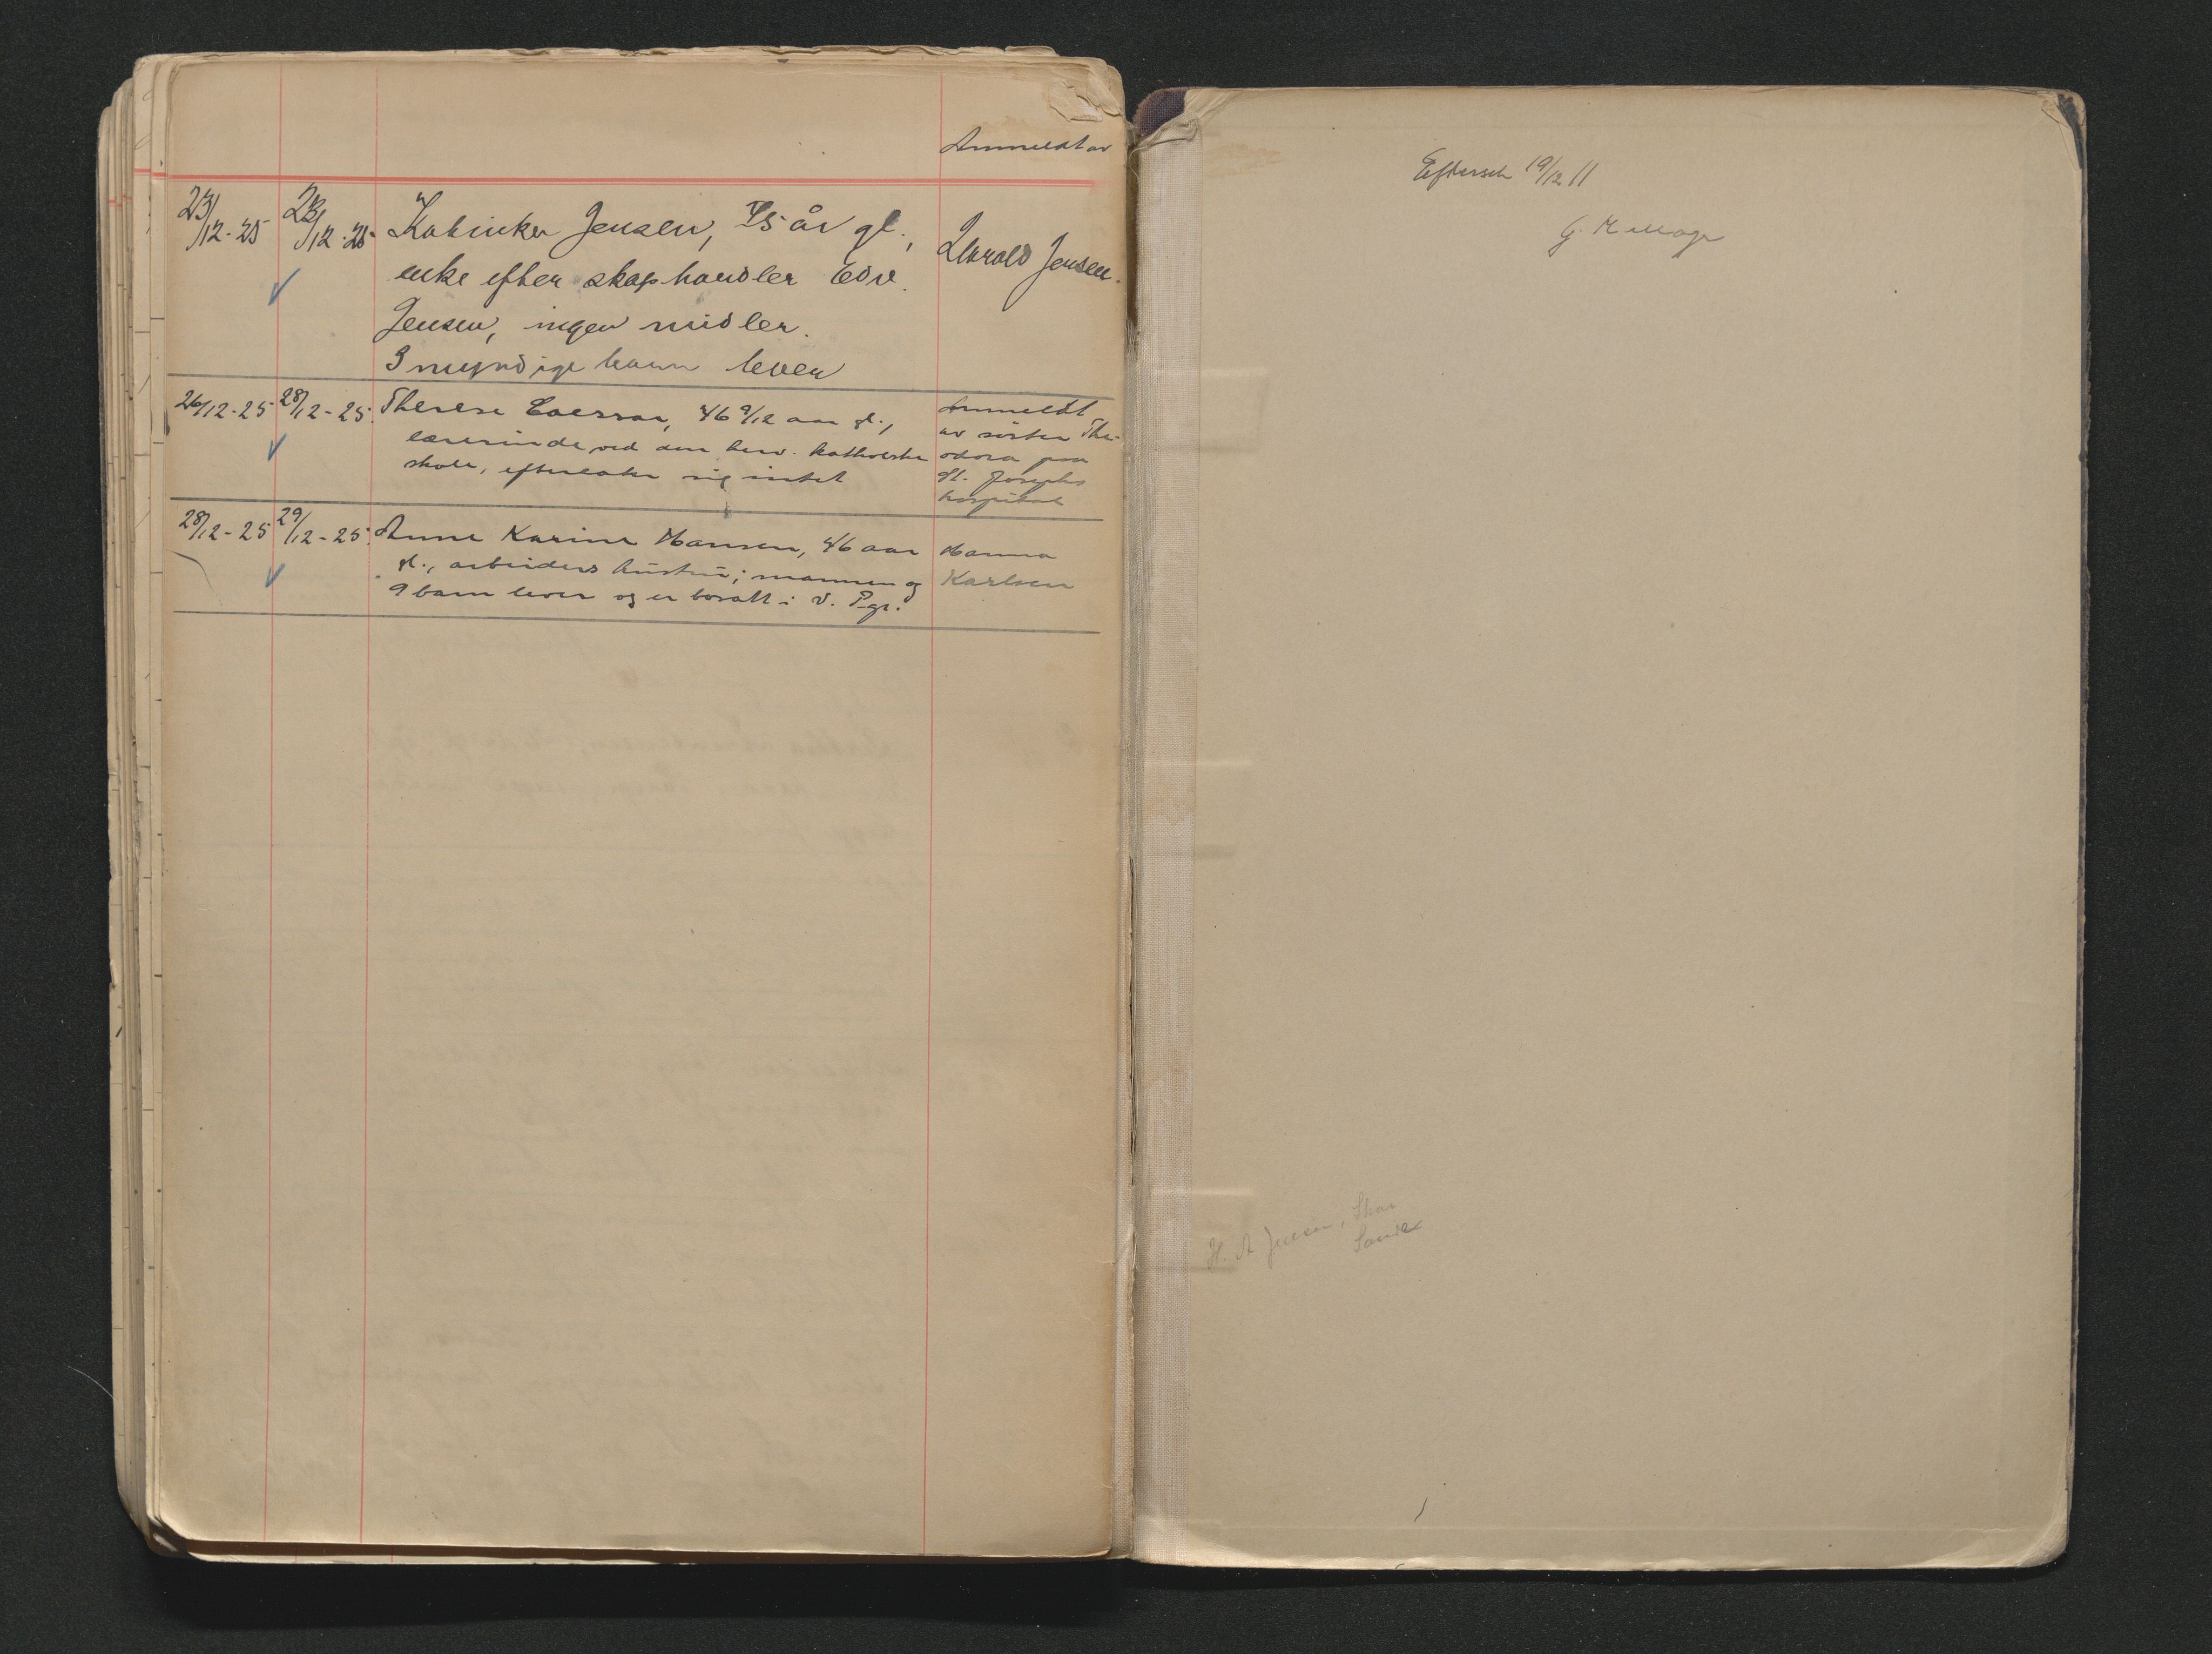 Anmeldt av
23/12-25 23/12-25 Katinka Jensen, 75 år gl.,
enke efter skaphandler Edv.
Jensen, ingen midler.
3 myndige barn lever
Harald Jensen.
26/12-25 28/12-25. Therese 46 9/12 aar gl.,
lærerinde ved den herv. katholske
skole, efterlater sig intet
Anmeldt
av søster The-
odora paa
St. Josephs
hospital
28/12-25 29/12-25. Anne Karine Hansen, 46 aar
gl., arbeiders hustru; mannen og
9 barn lever og er bosatt i V. P.gr.
Hanna
Karlsen
Eftersch 19/12 11
G.
H. A. Jensen,